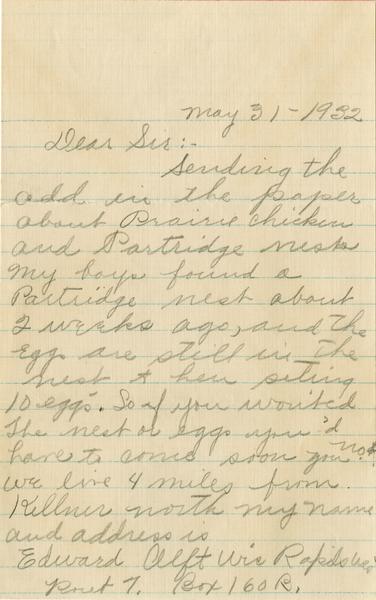 May 31-1932
Dear Sir:-
Sending the
add in the paper
about Prairie chicken
and Partridge nests
My boys found a
Partridge nest about
2 weeks ago, and the
eggs are still in the
nest & hen siting
10 eggs. So if you wonted
the nest or eggs you'd
have to come soon you no.
we live 4 miles from
Kellner north my name
and address is
Edward Alft Wis Rapids Wis
Rout 7. Box 160 R.